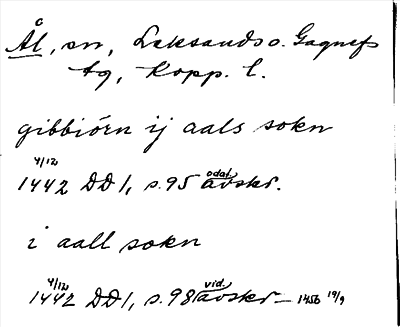 Ål, sn, Leksands o. Gagnefs
tg, Kopp. l.
gibbiórn ij aals sokn
4/12
1442 DD1, s. 95 odat. avskr.
i aall sokn
4/12
1442 DD1, s. 98 vid. avskr – 1456 19/9